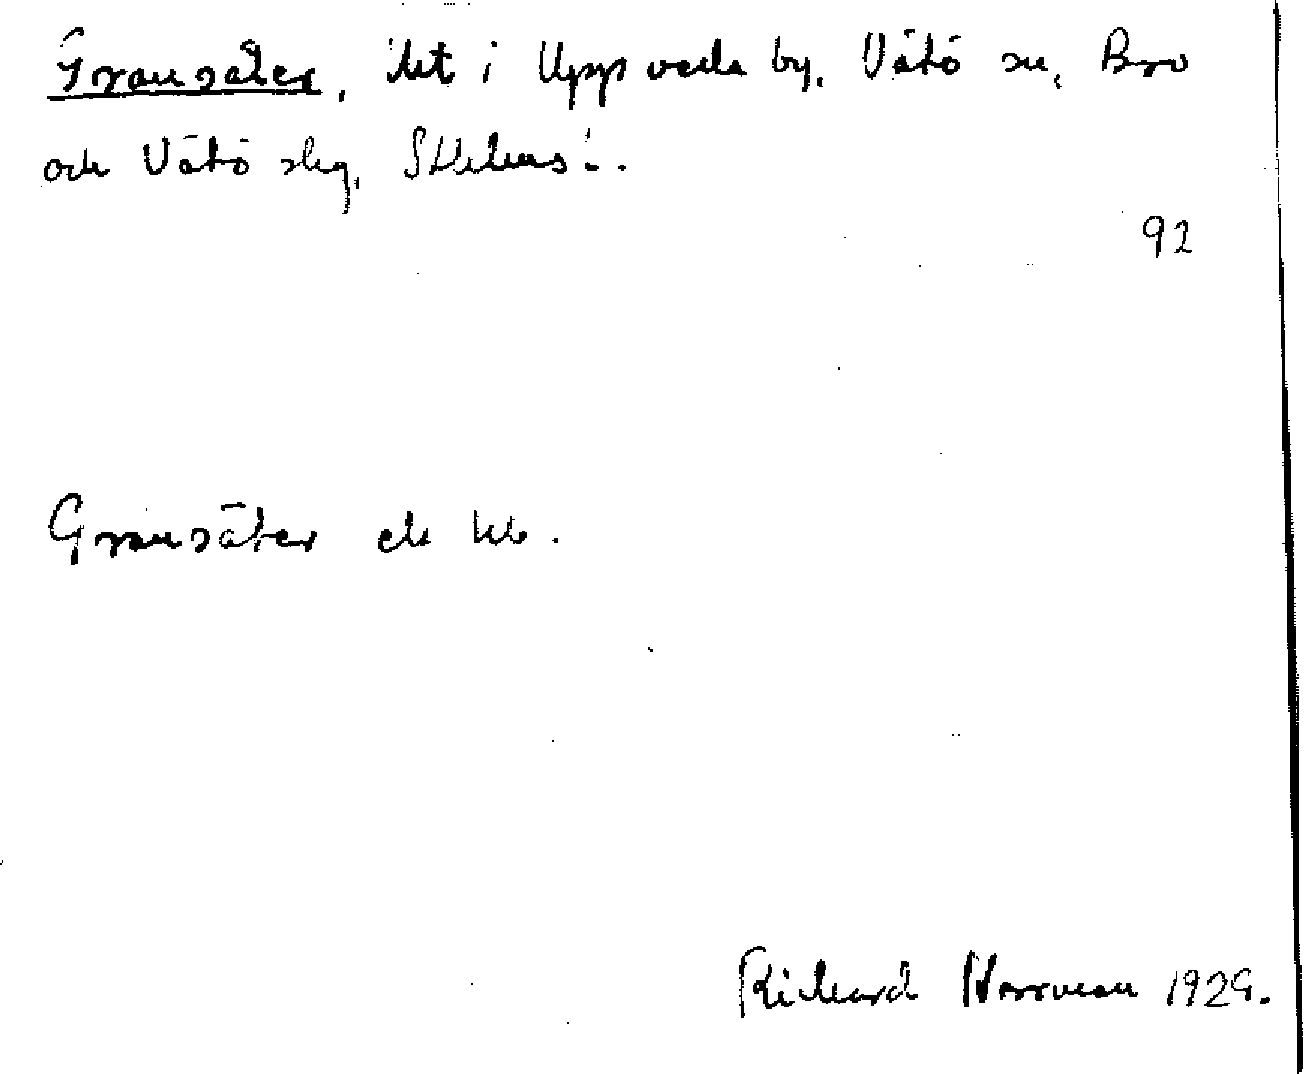 Gransäter, i Uppveda by, Vätö sn, Bro
och Vätö slg, Sthlms l.
92
Gransäter
Richard Norrman 1929.